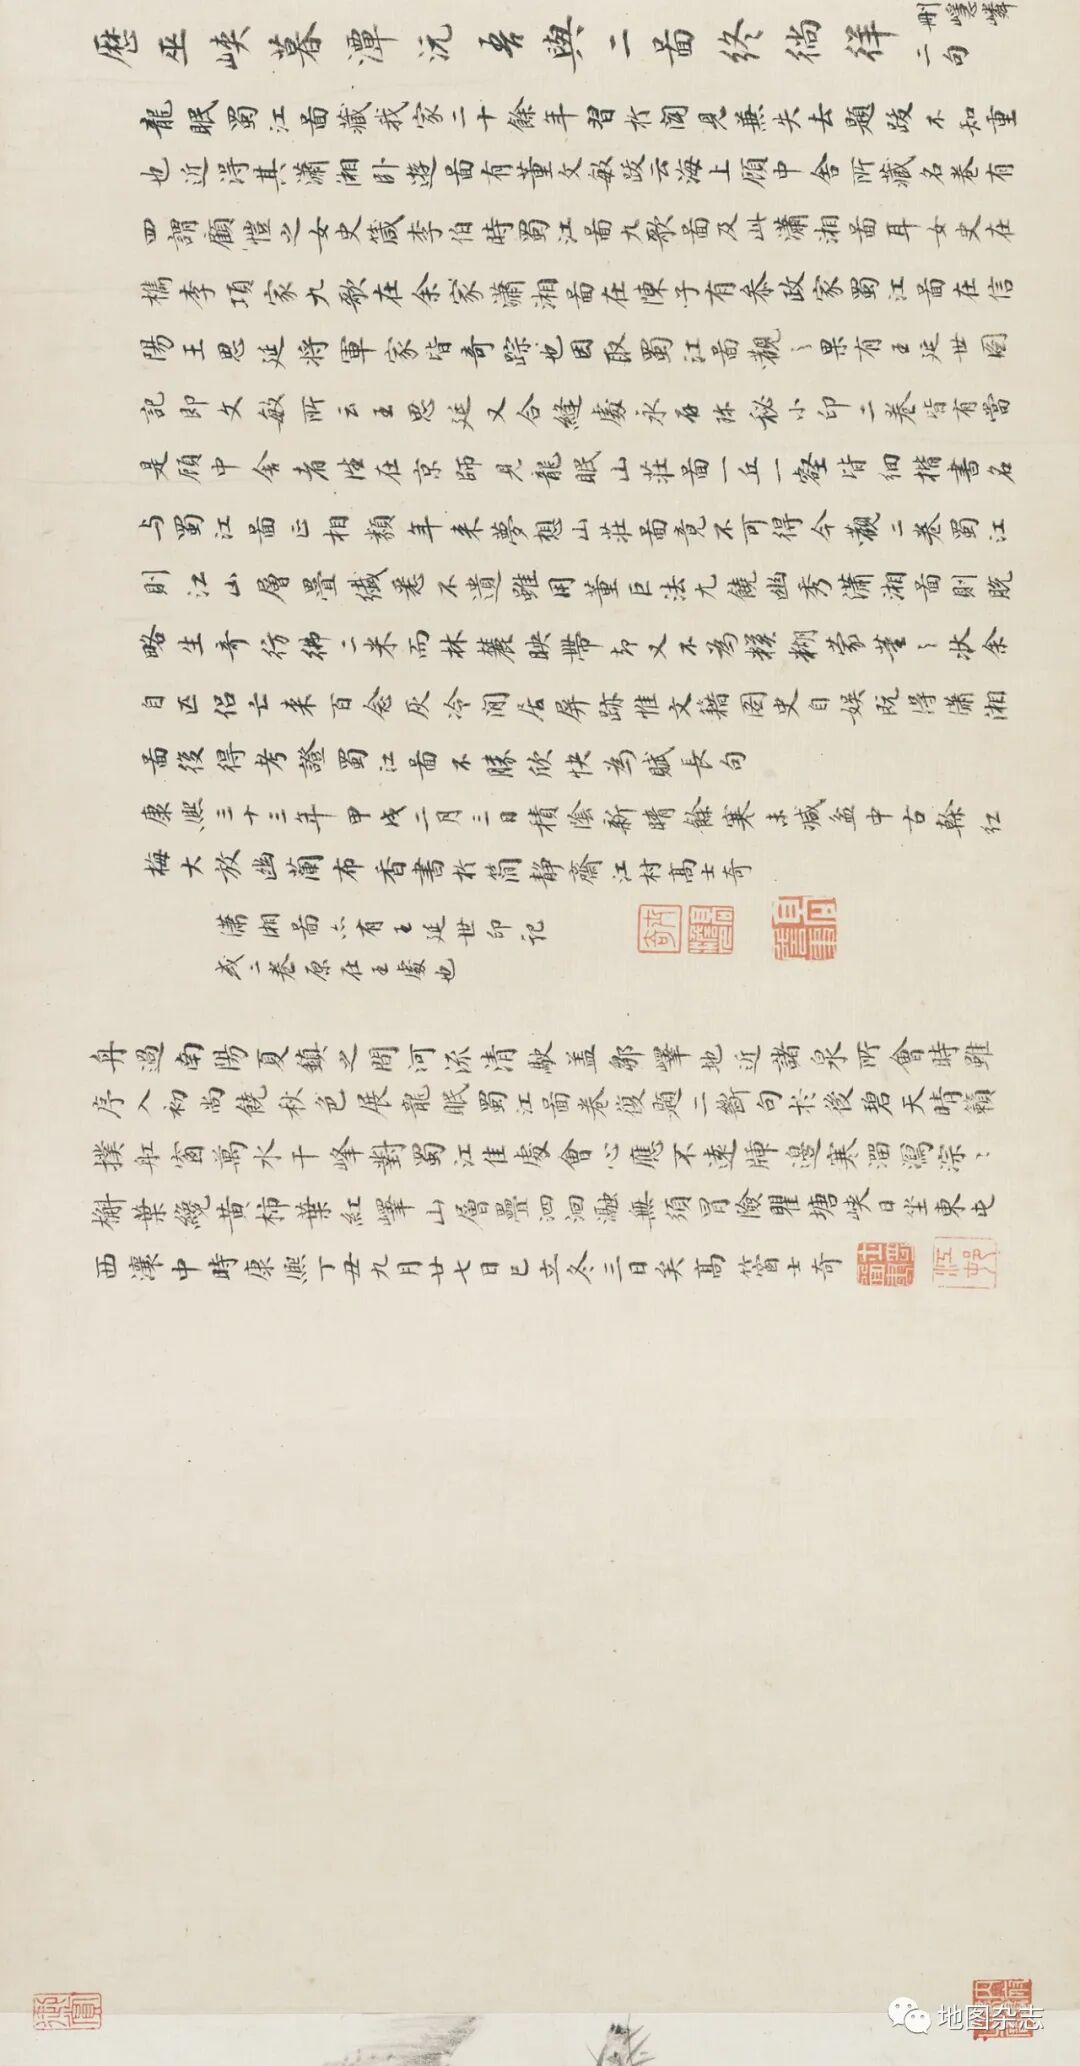 刪嶾嶙
二句
歷巫峽暮潭沅吾與二圖終徜徉
龍眠蜀江圖藏我家二十餘年習於聞見兼失去題跋不知重
也近得其瀟湘卧遊圖有董文敏跋云海上顧中舍所藏名卷有
四謂顧愷之女史箴李伯時蜀江圖九歌圖及此瀟湘圖耳女史在
檇李項家九歌在余家瀟湘圖在陳子有參政家蜀江圖在信
陽王思延將軍家皆奇踪也因取蜀江圖觀之果有王延世圖
記即文敏所云王思延又合縫處永存珍秘小印二卷皆有當
是顧中舍者往在京師見龍眠山莊圖一丘一壑皆細楷書名
与蜀江圖正相類年来夢想山莊圖竟不可得今觀二卷蜀江
則江山層疊纖悉不遺雖用董巨法尤饒幽秀瀟湘圖則脫
略生奇彷彿二米而林麓映帶却又不為糢糊蒙董之狀余
自匹侶亡来百念灰冷閒居屏跡惟文籍圖史自娛既得瀟湘
圖後得考證蜀江圖不勝欣快為賦長句
康熙三十三年甲戌二月三日積陰新晴餘寒未減盆中古幹紅
梅大放幽蘭布香書於簡静齋江村高士奇
瀟湘圖亦有王延世印記
或二卷原在王處也
舟過南陽夏鎮之間河流清駛盖鄒嶧地近諸泉所會時雖
序入初尚饒秋色展龍眠蜀江圖卷復題二斷句於後碧天晴籟
撲舡窗萬水千峰對蜀江佳處會心應不遠牀邊寒溜瀉淙淙
槲葉纔黄柿葉紅嶧山層疊泗洄瀜無須冒險瞿塘峽日坐東屯
西瀼中時康熙丁丑九月廿七日已立冬三日矣高篔士奇
地图杂志